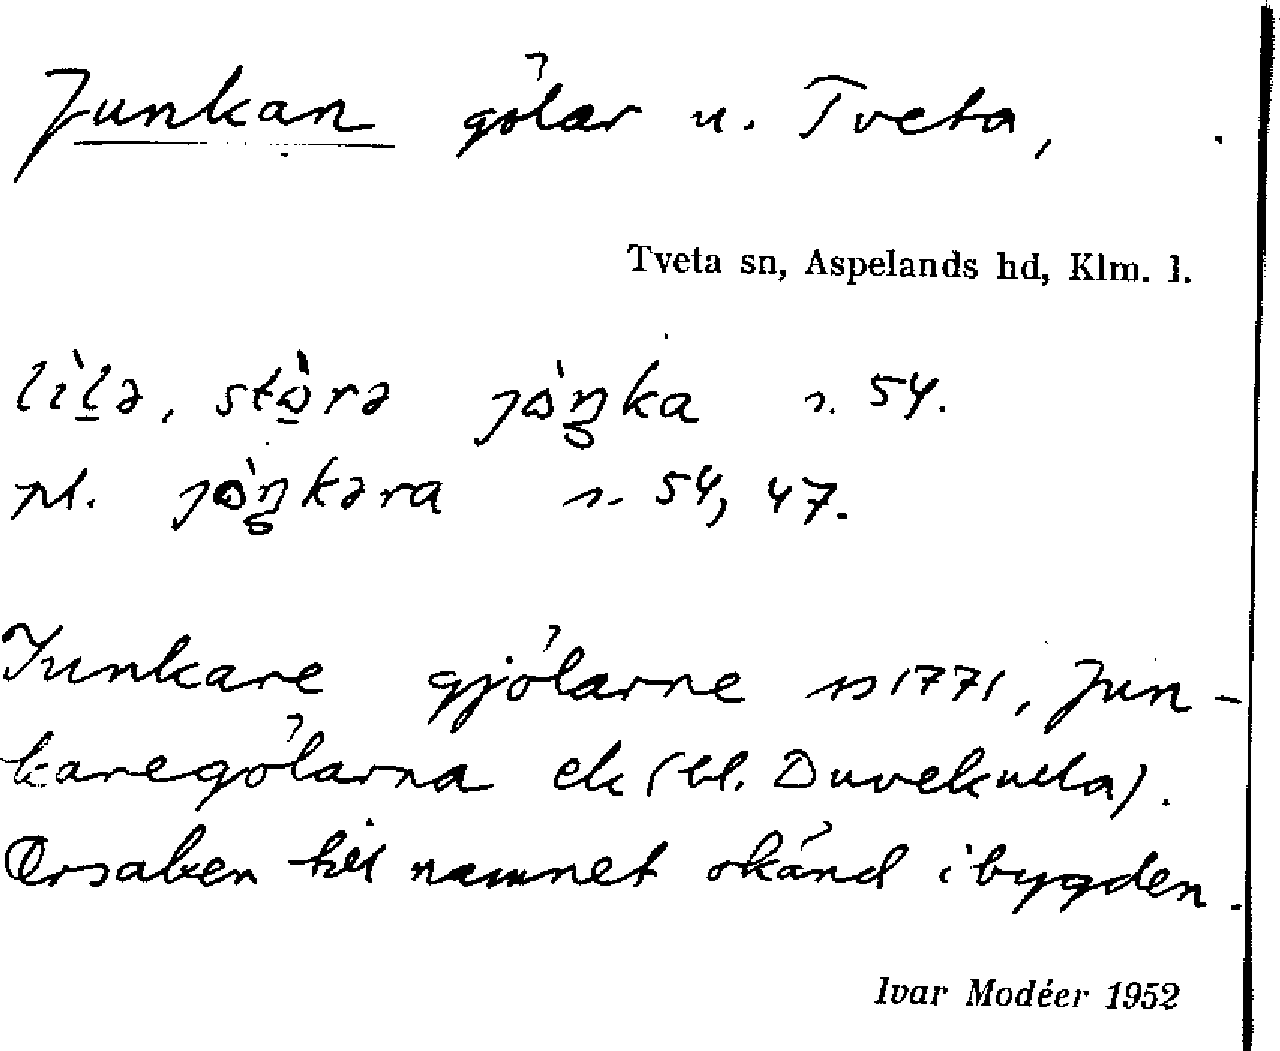 Junkan gölar u. Tveta,
Tveta sn, Aspelands hd, Klm. l.
lìl̠ə, stò̠rə jòŋka s. 54.
pl. jòŋkəra s. 54, 47.
Junkare gjölarne 1771, Jun-
karegölarna ek (bl. Duvekulla).
Orsaken till namnet okänd i bygden.
Ivar Modéer 1952